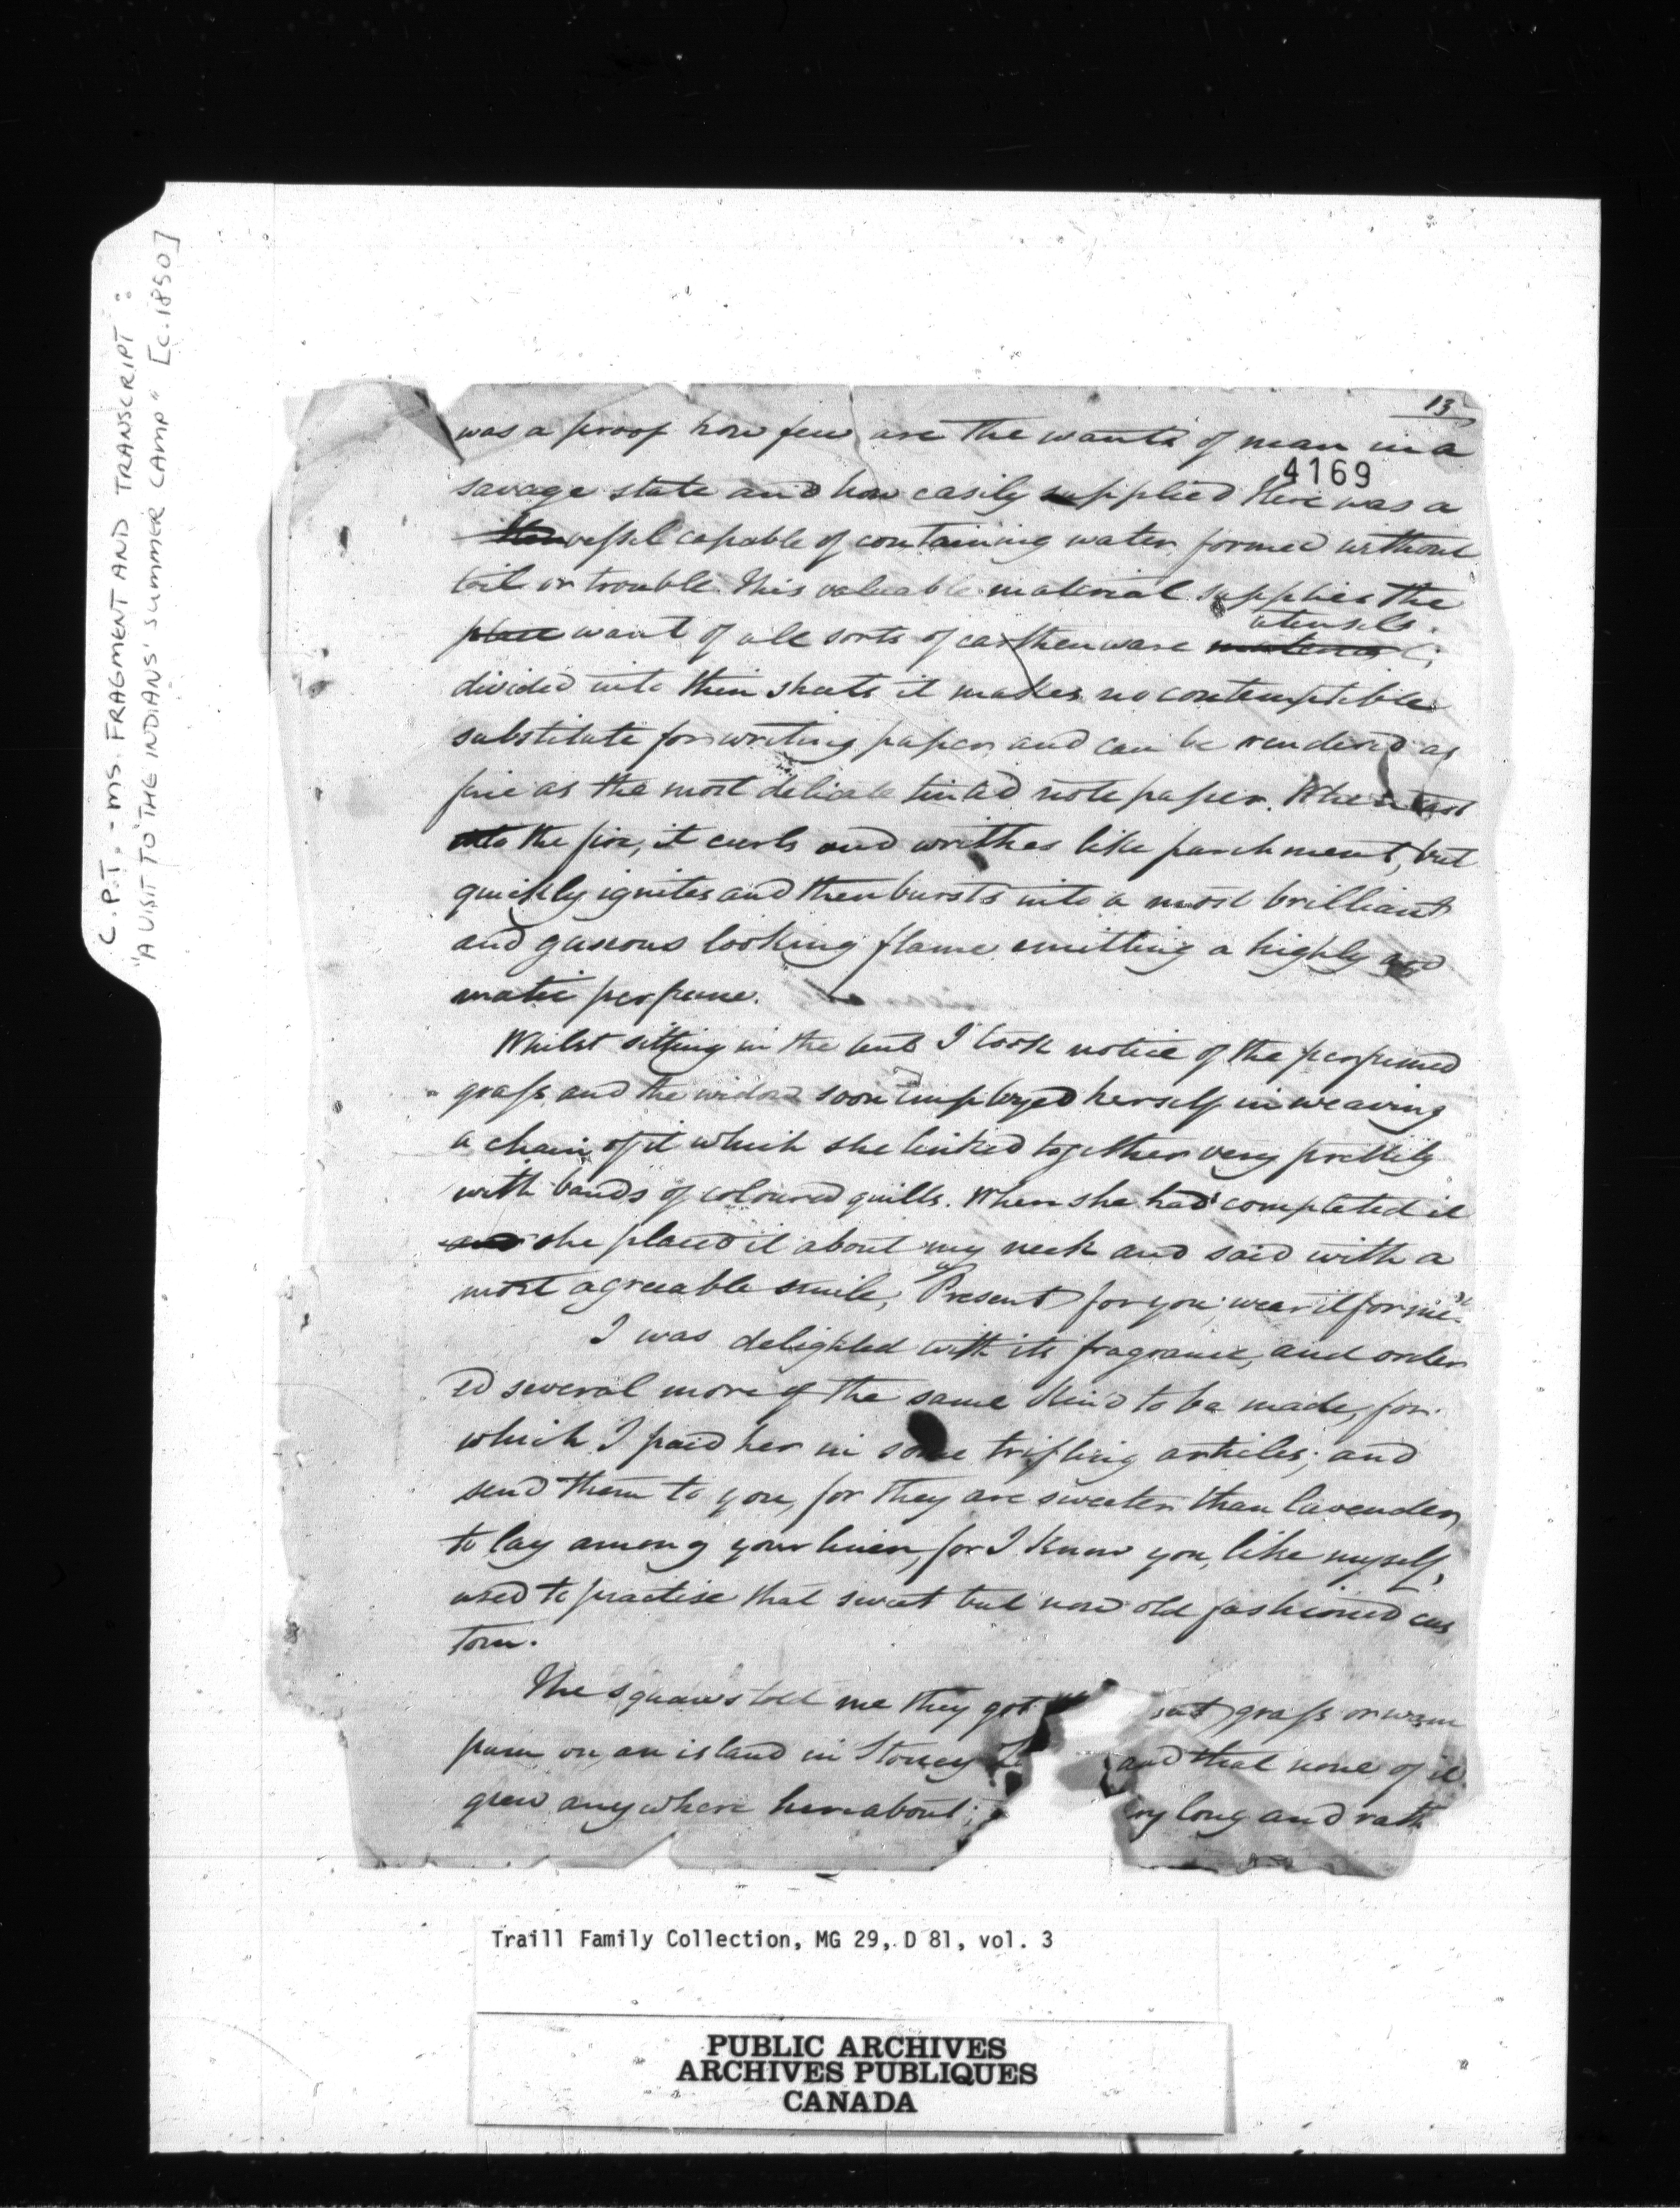 C.P.T. - MS. FRAGMENT AND TRANSCRIPT :
"A VISIT TO THE INDIANS' SUMMER CAMP" [C.1850]
13
was a proof how few are the wants of man in a
4169
savage state and how easily supplied Here was a
vessel capable of containing water, formed without
toil or trouble. This valuable material supplies the
utensils.
place want of all sorts of earthenware
divided into thin sheets it makes no contemptible
substitute for writing paper, and can be rendered as
fine as the most delicate tinted note paper. When cast
into the fire, it curls and writhes like parchment, but
quickly ignites and then bursts into a most brilliant
and gaseous looking flame emitting a highly aro
matic perfume.
Whilst sitting in the tent I took notice of the perfumed
grass, and the widow soon employed herself in weaving
a chain of it which she linked together very prettily
with bands of coloured quills. When she had completed it
and she placed it about my neck and said with a
most agreeable smile, "Present for you; wear it for me"
I was delighted with its fragrance, and order
ed several more of the same kind to be made, for
which I paid her in some trifling articles; and
send them to you, for they are sweeter than lavender,
to lay among your linen, for I know you, like myself,
used to practise that sweet but now old fashioned cus
tom.
The squaws told me they got grass or wam
pum on an island in Stoney L and that none of it
grew anywhere hereabout; ery long and rath
Traill Family Collection, MG 29, D 81, vol. 3
PUBLIC ARCHIVES
ARCHIVES PUBLIQUES
CANADA